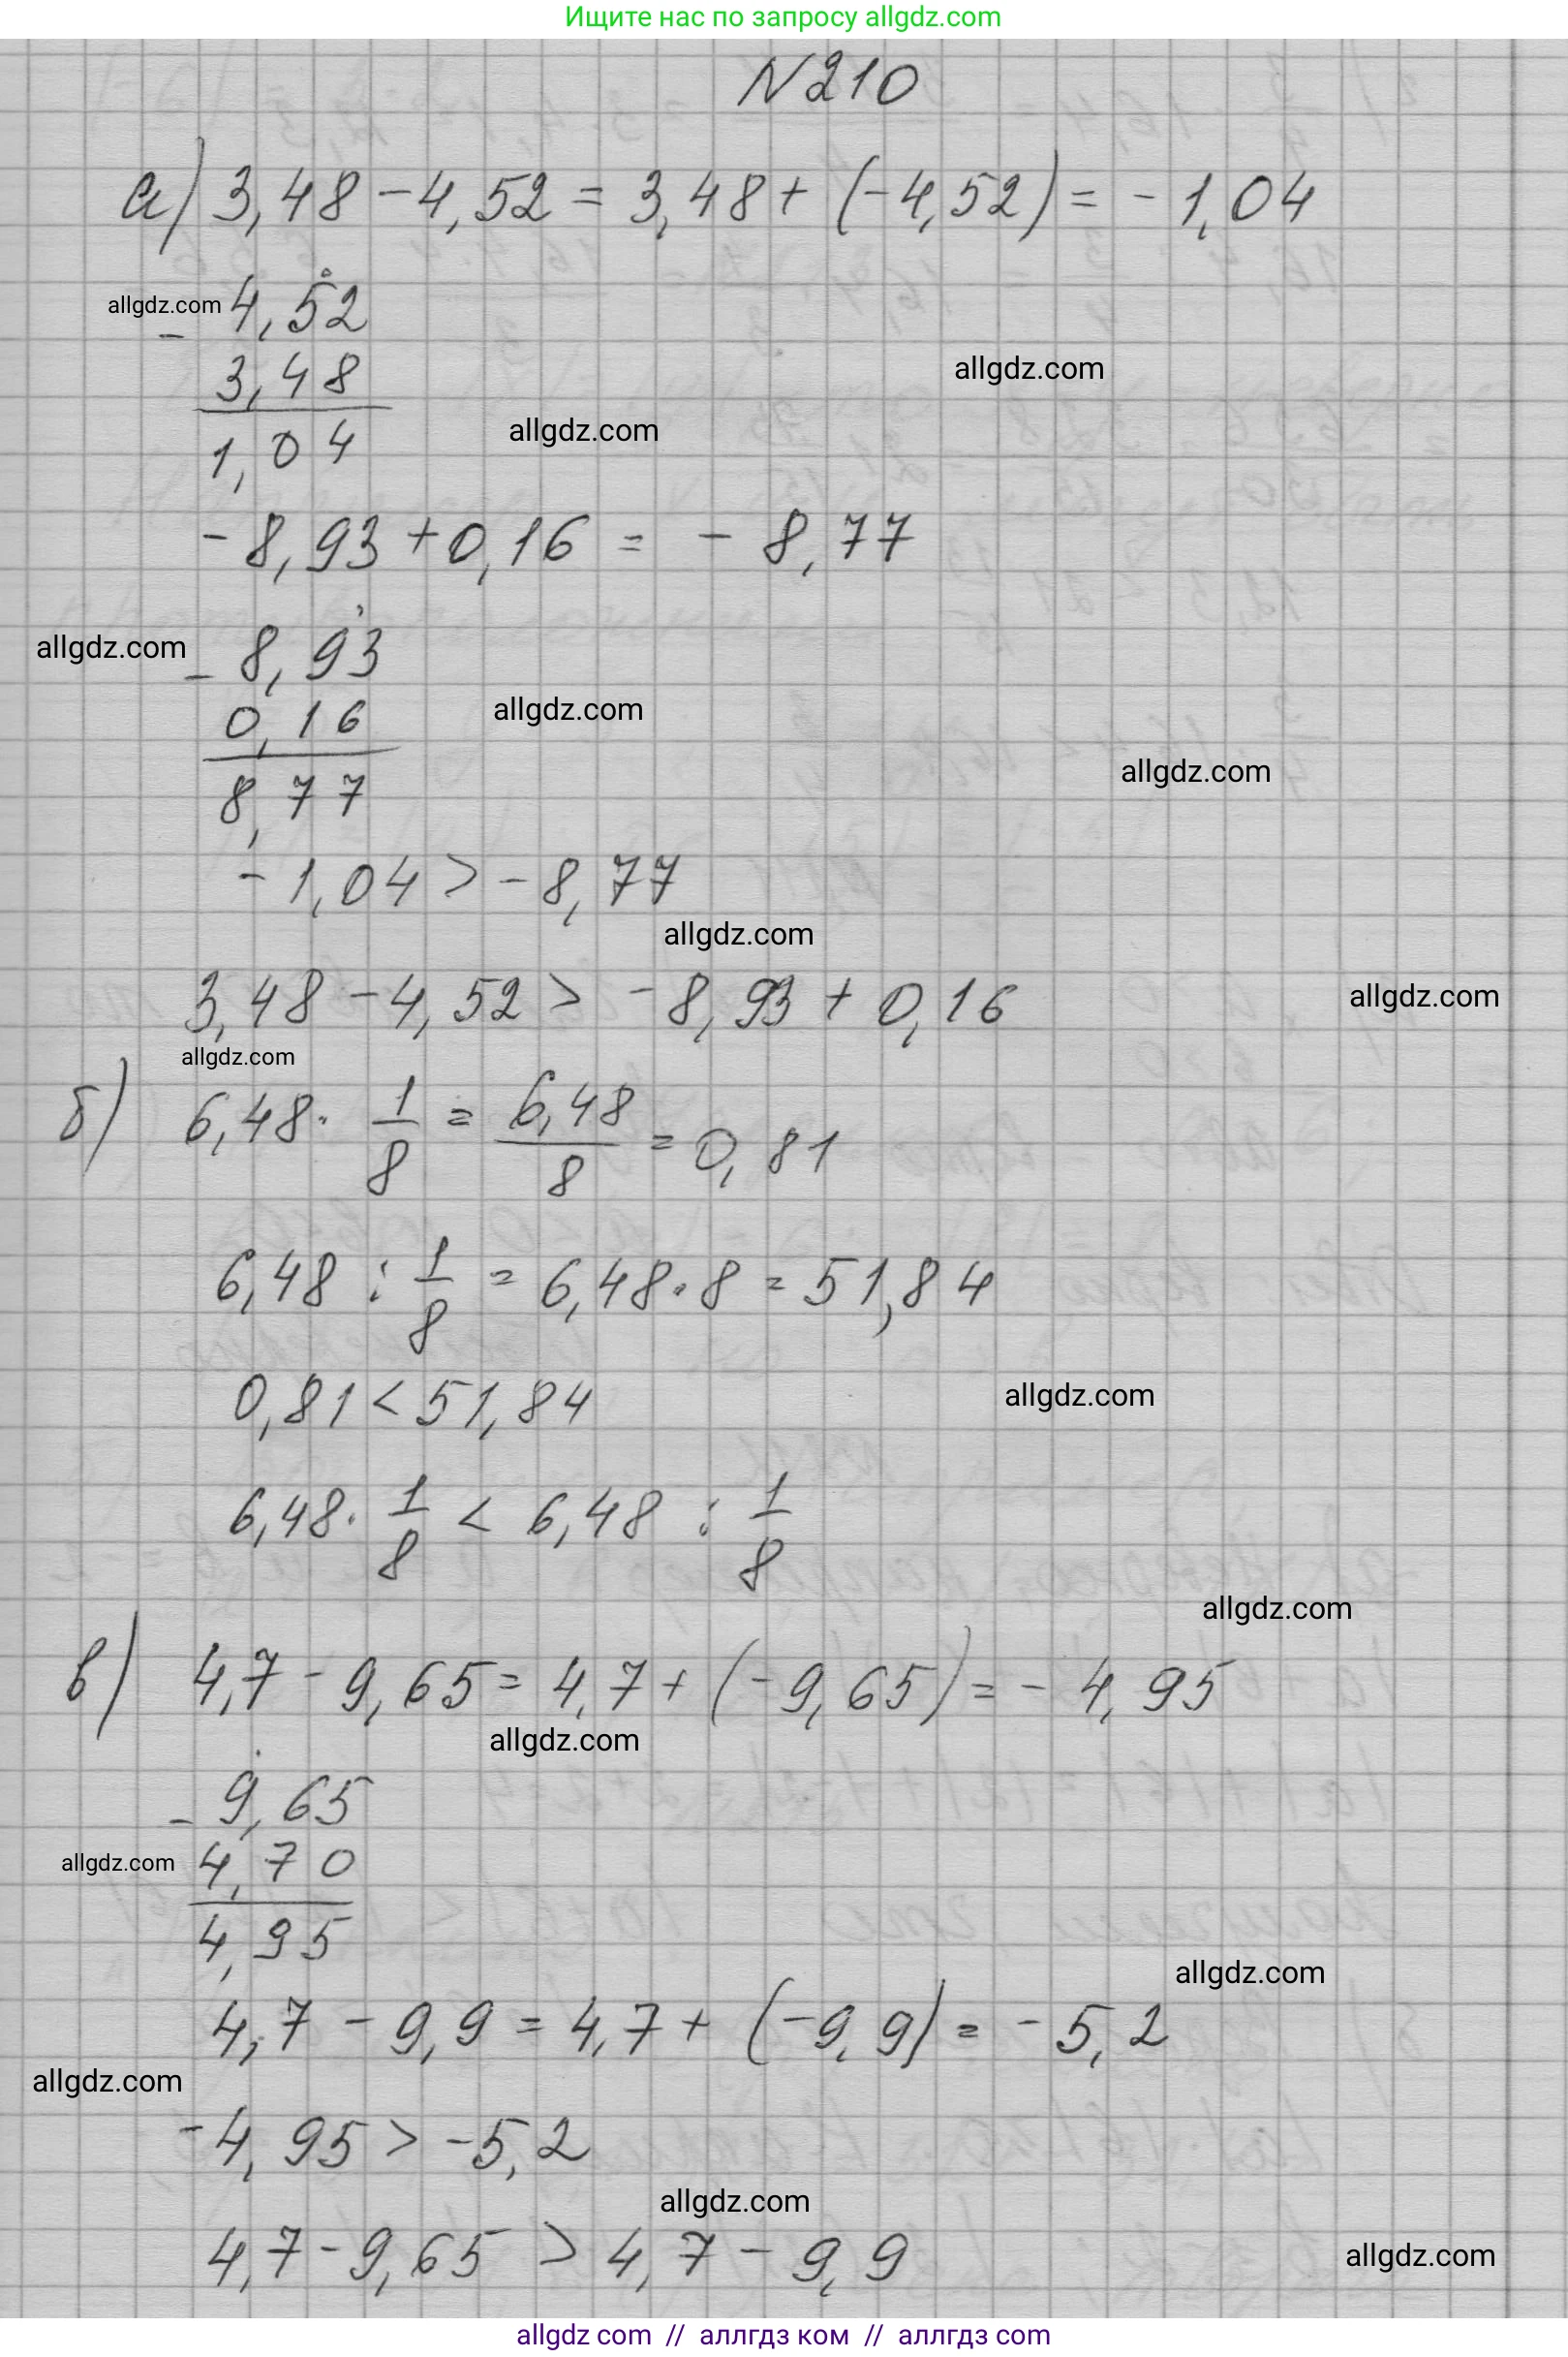 Ищите нас по запросу allgdz.com
N210
а) 3,48 - 4,52 = 3,48 + (-4,52) = - 1,04
allgdz.com
- 4,52
3,48
1,04
allgdz.com
allgdz.com
- 8,93 + 0,16 = - 8,77
allgdz.com
- 8,93
0,16
8,77
allgdz.com
allgdz.com
- 1,04 > - 8,77
allgdz.com
3,48 - 4,52 > - 8,93 + 0,16
allgdz.com
allgdz.com
б) 6,48 · 1/8 = 6,48/8 = 0,81
6,48 : 1/8 = 6,48 · 8 = 51,84
0,81 < 51,84
allgdz.com
6,48 · 1/8 < 6,48 : 1/8
allgdz.com
в) 4,7 - 9,65 = 4,7 + (-9,65) = - 4,95
allgdz.com
- 9,65
4,70
4,95
allgdz.com
allgdz.com
4,7 - 9,9 = 4,7 + (-9,9) = - 5,2
allgdz.com
- 4,95 > -5,2
allgdz.com
4,7 - 9,65 > 4,7 - 9,9
allgdz.com
allgdz com // аллгдз ком // аллгдз com